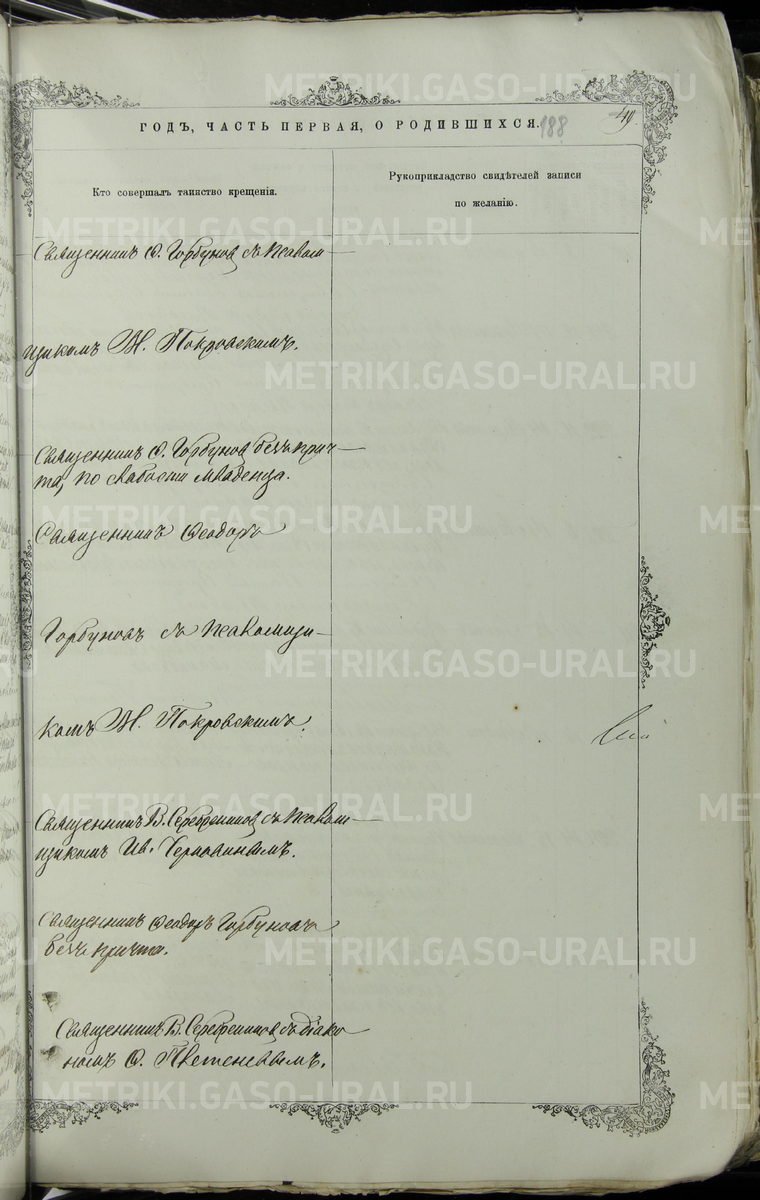 ГОДЪ, ЧАСТЬ ПЕРВАЯ, О РОДИВШИХСЯ.
188
49.
Кто совершалъ таинство крещенія.
Рукоприкладство свидѣтелей записи
по желанію.
Священникъ Ѳ. Горбуновъ съ псалом-
щикомъ М. Покровскимъ.
Священникъ Ѳ. Горбуновъ безъ прич-
та, по слабости младенца.
Священникъ Ѳеодоръ
Горбуновъ съ псаломщи-
комъ М. Покровскимъ.
Священникъ В. Серебренниковъ съ псалом-
щикомъ Ив.
Священникъ Ѳеодоръ Горбуновъ
безъ причта.
Священникъ В. Серебренниковъ съ діако-
номъ Ѳ.
METRIKI.GASO-URAL.RU